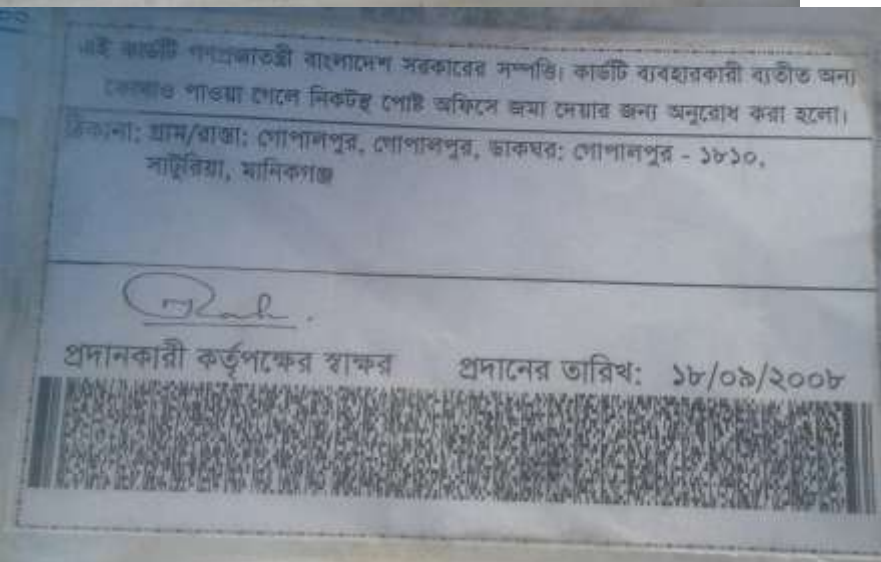 এই কার্ডটি গণপ্রজাতন্ত্রী বাংলাদেশ সরকারের সম্পত্তি। কার্ডটি ব্যবহারকারী ব্যতীত অন্য
কোথাও পাওয়া গেলে নিকটস্থ পোষ্ট অফিসে জমা দেয়ার জন্য অনুরোধ করা হলো।
ঠিকানা: গ্রাম/রাস্তা: গোপালপুর, গোপালপুর, ডাকঘর: গোপালপুর - ১৮১০,
সাটুরিয়া, মানিকগঞ্জ
প্রদানকারী কর্তৃপক্ষের স্বাক্ষর প্রদানের তারিখ: ১৮/০৯/২০০৮